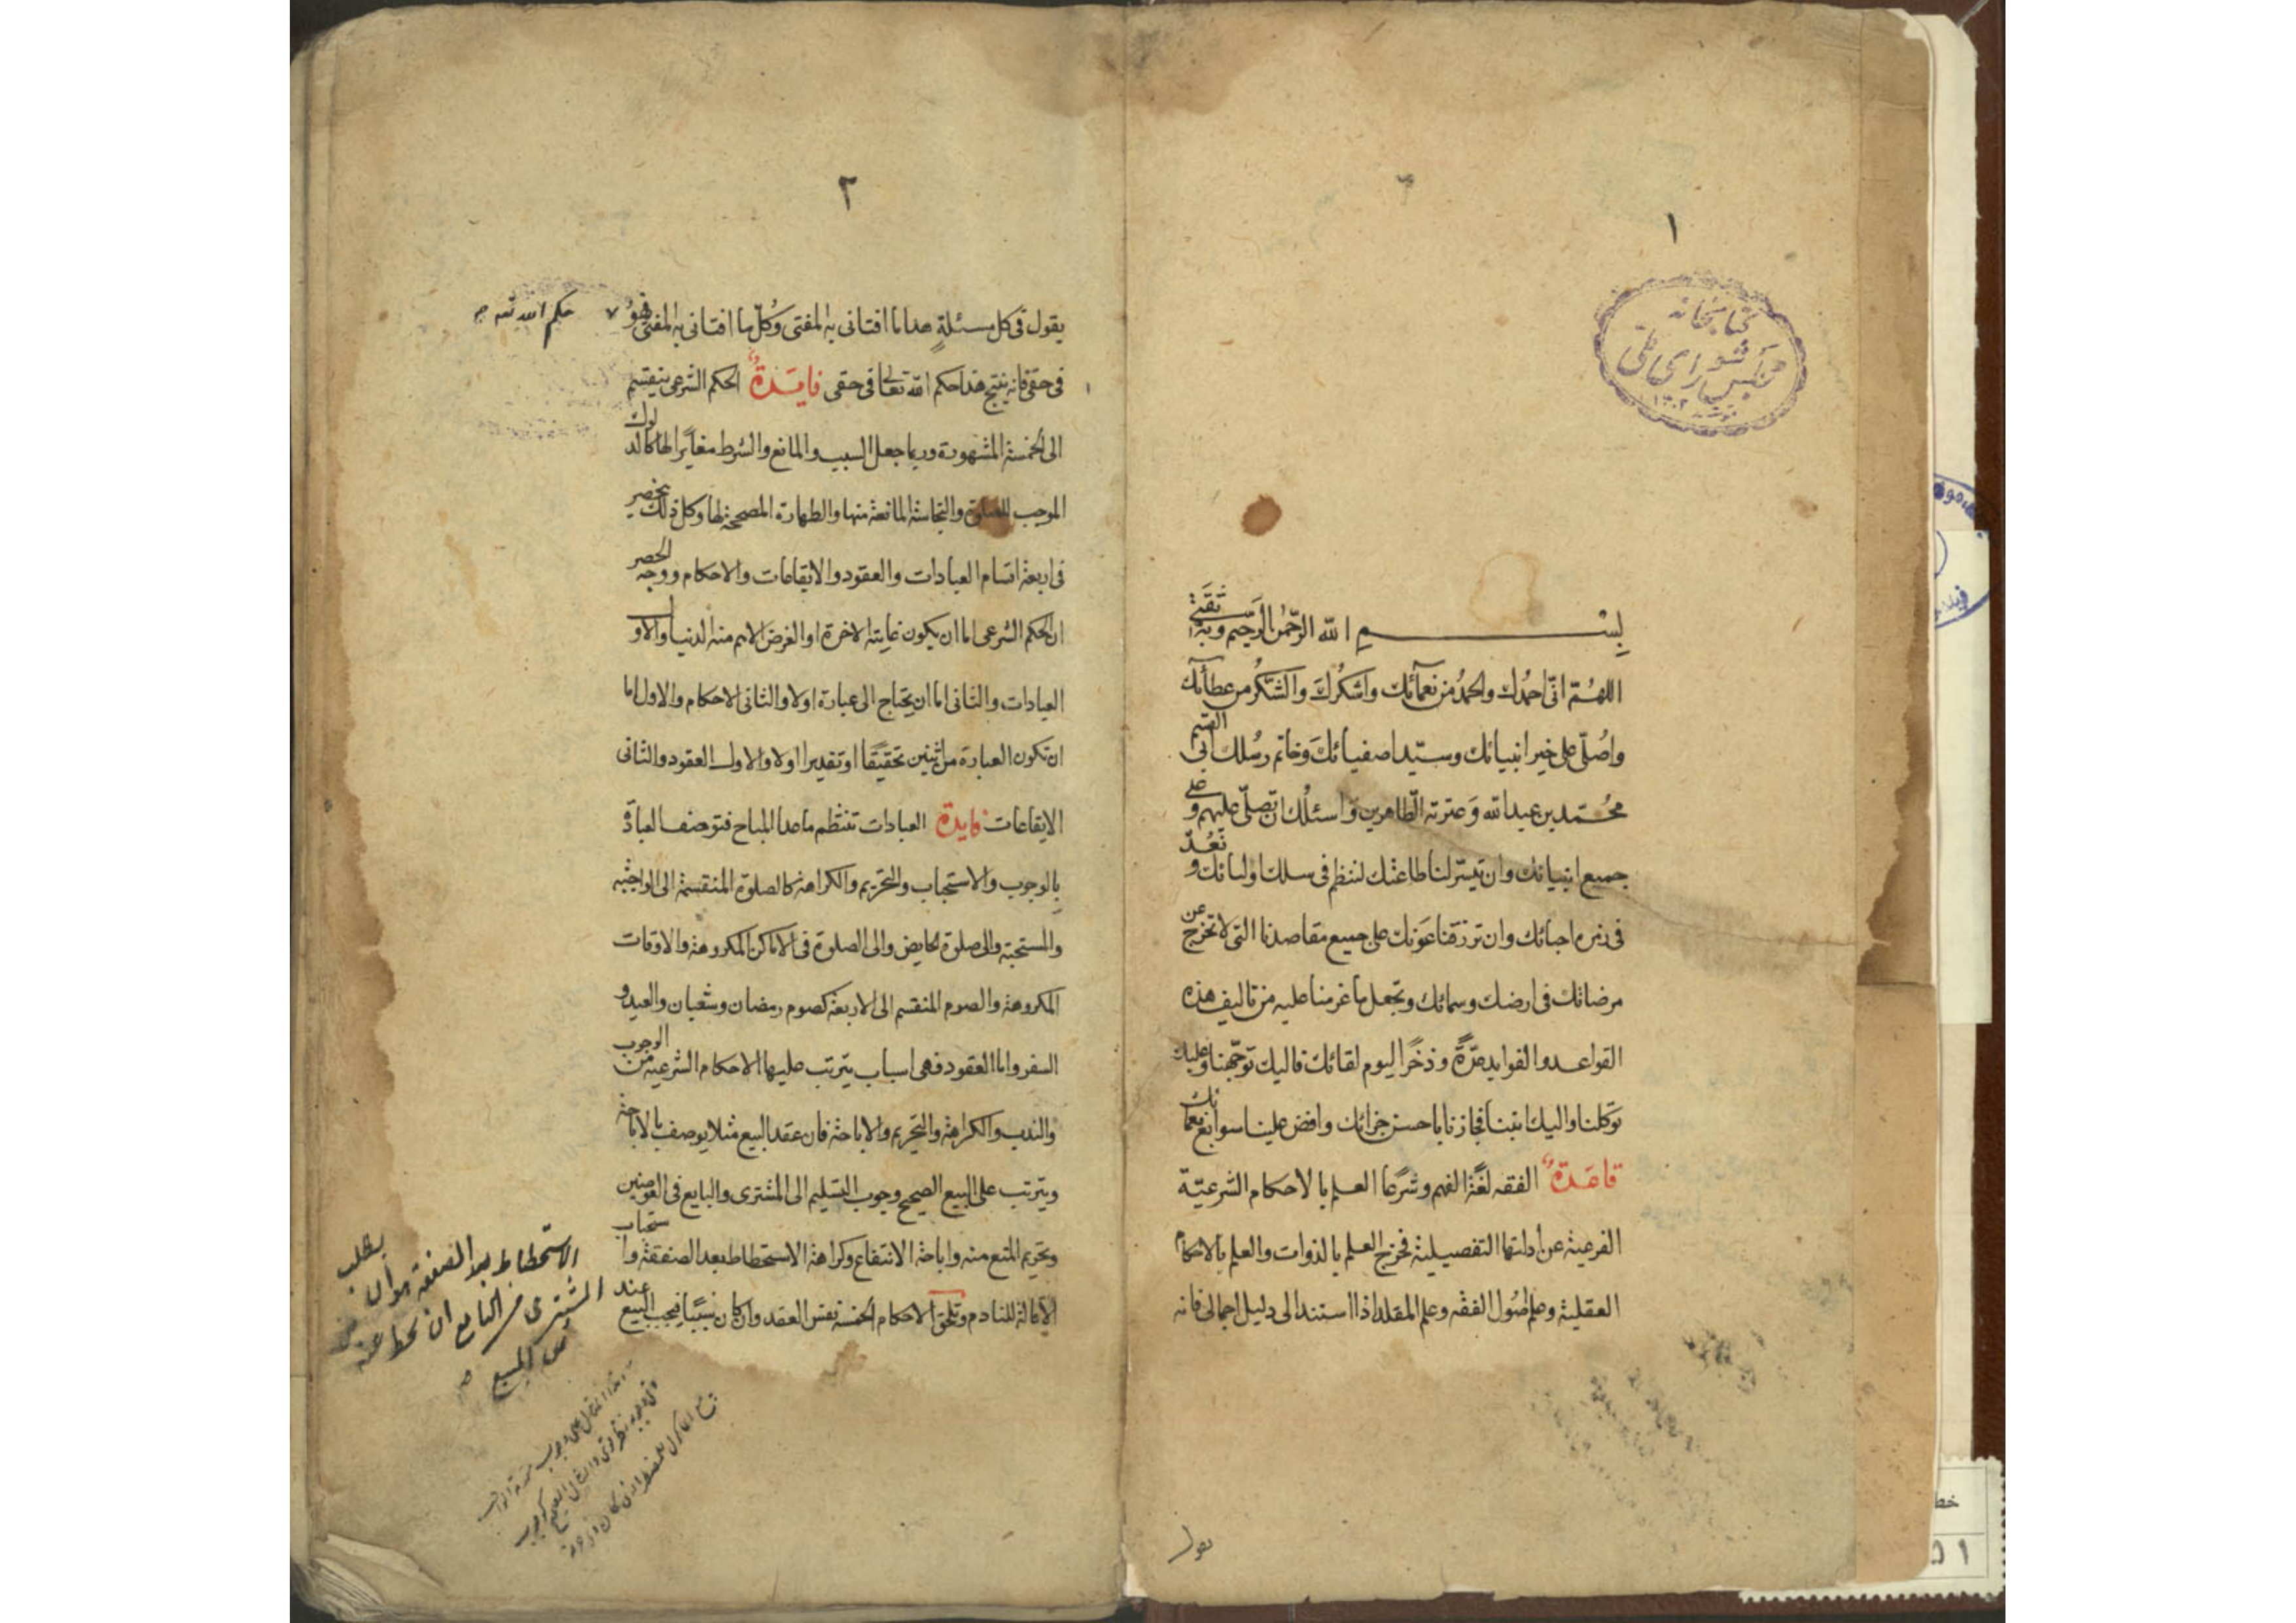 ١
كتابخانه
مجلس شورای ملی
بسم الله الرحمن الرحيم وبه ثقتي
اللهُمّ انّى احمدُك والحمدُ من نعمآئك واشكُرك والشكُر من عطآئك
واُصلّى على خير انبيائك وسيّد اصفيائك وخاتم رسُلك ابى القسم
محُمّد بن عبد الله وَعترته الطّاهرين وَاسئلُك ان تصلّى عليهم وعلى
جميع انبيائك وان تيسّر لنا طاعتك لننظم فى سلك اوليائك ونُعَدّ
فى زمره احبائك وان ترزقنا عَونك على جميع مقاصدنا التى لا تخرج عن
مرضاتك فى ارضك وسمائك وتجعل ما عزمنا عليه من تاليف هذه
القواعد والفوايد عدّةً وذخرًا ليوم لقائك فاليك توجّهنا وعليك
توكلنا واليك انبنا فجازنا باحسن جزائك وافض علينا سوابغ نعمائك
قاعدة الفقه لغةً الفهم وشرعًا العلم بالاحكام الشرعيّة
الفرعية عن ادلتها التفصيلية فخرج العلم بالذوات والعلم بالاحكام
العقلية وعلم اصُول الفقه وعلم المقلد اذا استند الى دليل اجمالى فانه
يقول
٢
يقول فى كل مسئلةٍ هذا ما افتانى به المفتى وكُلّ ما افتانى به المفتى فهو
حكم الله
فى حقى فانه ينتج هذا حكم الله تعالى فى حقى فايَدة الحكم الشرعى ينقسم
الى الخمسة المشهورة وربما جعل السبب والمانع والشرط مغايرًا لها كالدلوك
الموجب للصلوة والنجاسة المانعة منها والطهارة المصححة لها وكل ذلك ينحصر
فى اربعة اقسام العبادات والعقود والايقاعات والاحكام ووجه الحصر
ان الحكم الشرعى اما ان يكون غايته الاخرة او الغرض الاهم منه الدنيا والاول
العبادات والثانى اما ان يحتاج الى عبارة اولا والثانى الاحكام والاول اما
ان تكون العبارة من اثنين تحقيقًا او تقديرا اولا والاول العقود والثانى
الايقاعات فايدة العبادات تنتظم ما عدا المباح فتوصف العبادة
بالوجوب والاستحباب والتحريم والكراهة كالصلوة المنقسمة الى الواجبه
والمستحبة والى صلوة الحايض والى الصلوة فى الاماكن المكروهة والاوقات
المكروهة والصوم المنقسم الى الاربعة كصوم رمضان وشعبان والعيد و
السفر واما العقود فهى اسباب يترتب عليها الاحكام الشرعية من الوجوب
والندب والكراهة والتحريم والاباحة فان عقد البيع مثلا يوصف بالاباحة
ويترتب على البيع الصحيح وجوب التسليم الى المشترى والبايع فى العوضين
وتحريم المنع منه واباحة الانتفاع وكراهة الاستحطاط بعد الصفقة واستحباب
الاقالة للنادم وتلحق الاحكام الخمسة نفس العقد وان كان سببًا فيجب البيع عند
الاستحطاط بعد الصفقة هو ان يطلب
المشترى من البايع ان يحط عنه
ثمن المبيع